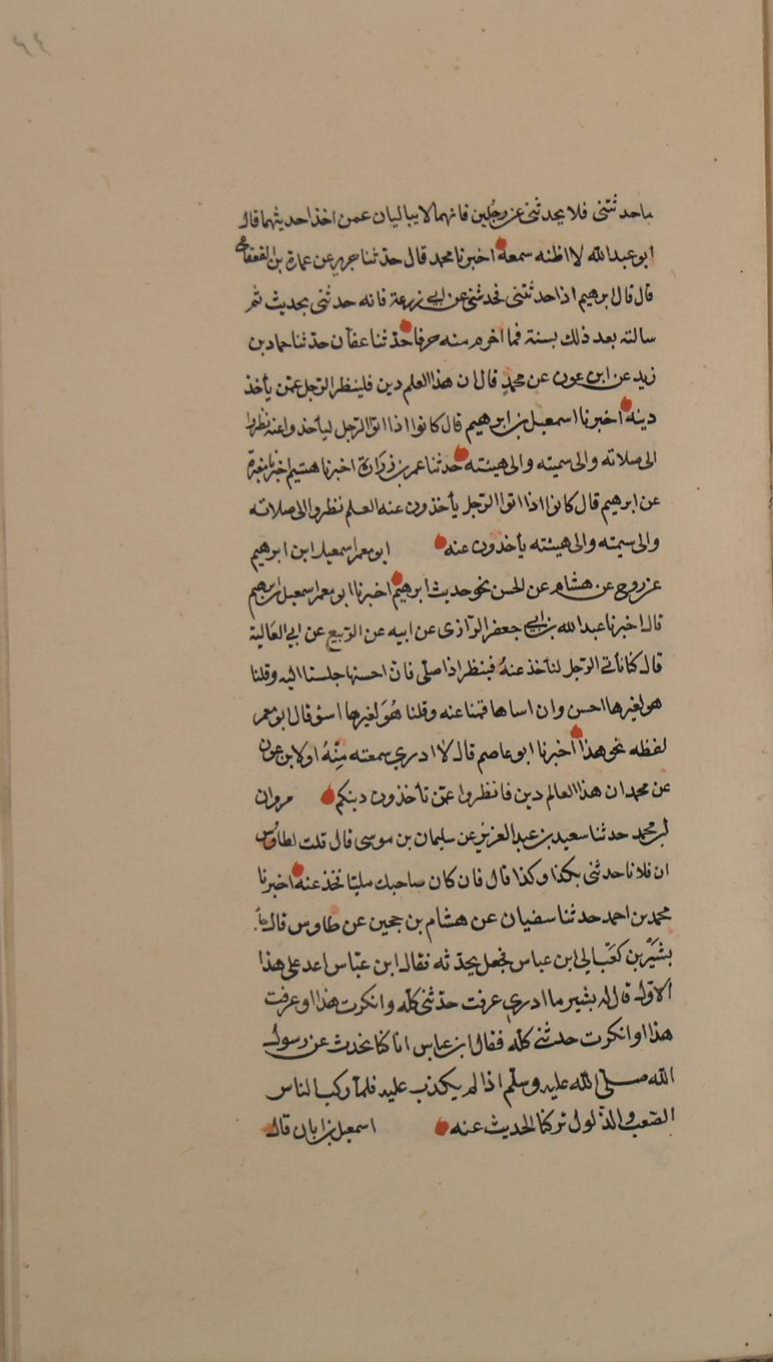 ٩٤
ما حدثتنى فلا يحدثنى عن رجلين فانهما لا يباليان عمن اخذا حديثهما قال
ابو عبد الله لا اظنه سمعه اخبرنا محمد قال حدثنا جرير عن عمارة بن القعقاع
قال قال ابرهيم اذا حدثتنى فحدثنى عن ابى زرعة فانه حدثنى بحديث ثم
سالته بعد ذلك بسنة فما اخرم منه حرفا حدثنا عفان حدثنا حماد بن
زيد عن ابن عون عن محمد قال ان هذا العلم دين فلينظر الرجل عمن يأخذ
دينه اخبرنا اسمعيل بن ابرهيم قال كانوا اذا اتوا الرجل ليأخذوا عنه نظروا
الى صلاته والى سميته والى هيئته حدثنا عمر بن زرارة اخبرنا هشيم اخبرنا مغيرة
عن ابرهيم قال كانوا اذا اتوا الرجل يأخذون عنه العلم نظروا الى صلاته
والى سيمته والى هيئته يأخذون عنه ابو معمر اسمعيل ابن ابرهيم
عن روح عن هشام عن الحسن نحو حديث ابرهيم اخبرنا ابو معمر اسمعيل بن ابرهيم
قال اخبرنا عبد الله بن ابى جعفر الرازى عن ابيه عن الربيع عن ابي العالية
قال كنا نأتى الرجل لنأخذ عنه فينظر اذا صلى فان احسنها جلسنا اليه وقلنا
هو لغيرها احسن وان اساها قمنا عنه وقلنا هو لغيرها اسؤ قال ابو معمر
لفظه نحو هذا اخبرنا ابو عاصم قال لا ادري سمعته منه اولا بن عون
عن محمد ان هذا العالم دين فانظروا عمن تأخذون دينكم مروان
بن محمد حدثنا سعيد بن عبد العزيز عن سليمان بن موسى قال قلت لطاوس
ان فلانا حدثنى بكذا وكذا قال فان كان صاحبك مليا فخذ عنه اخبرنا
محمد بن احمد حدثنا سفيان عن هشام بن جحين عن طاوس قال جأ
بشير بن كعب الى ابن عباس فجعل يحدثه فقال ابن عباس اعد على هذا
الاول قال له بشير ما ادري عرفت حدثنى كله وانكرت هذا او عرفت
هذا او انكرت حدثنى كله فقال ابن عباس انا كنا نحدث عن رسول
الله صلى الله عليه وسلم اذا لم يكذب عليه فلما ركب الناس
الصعب والذلول تركنا الحديث عنه اسمعيل بن ابان قال